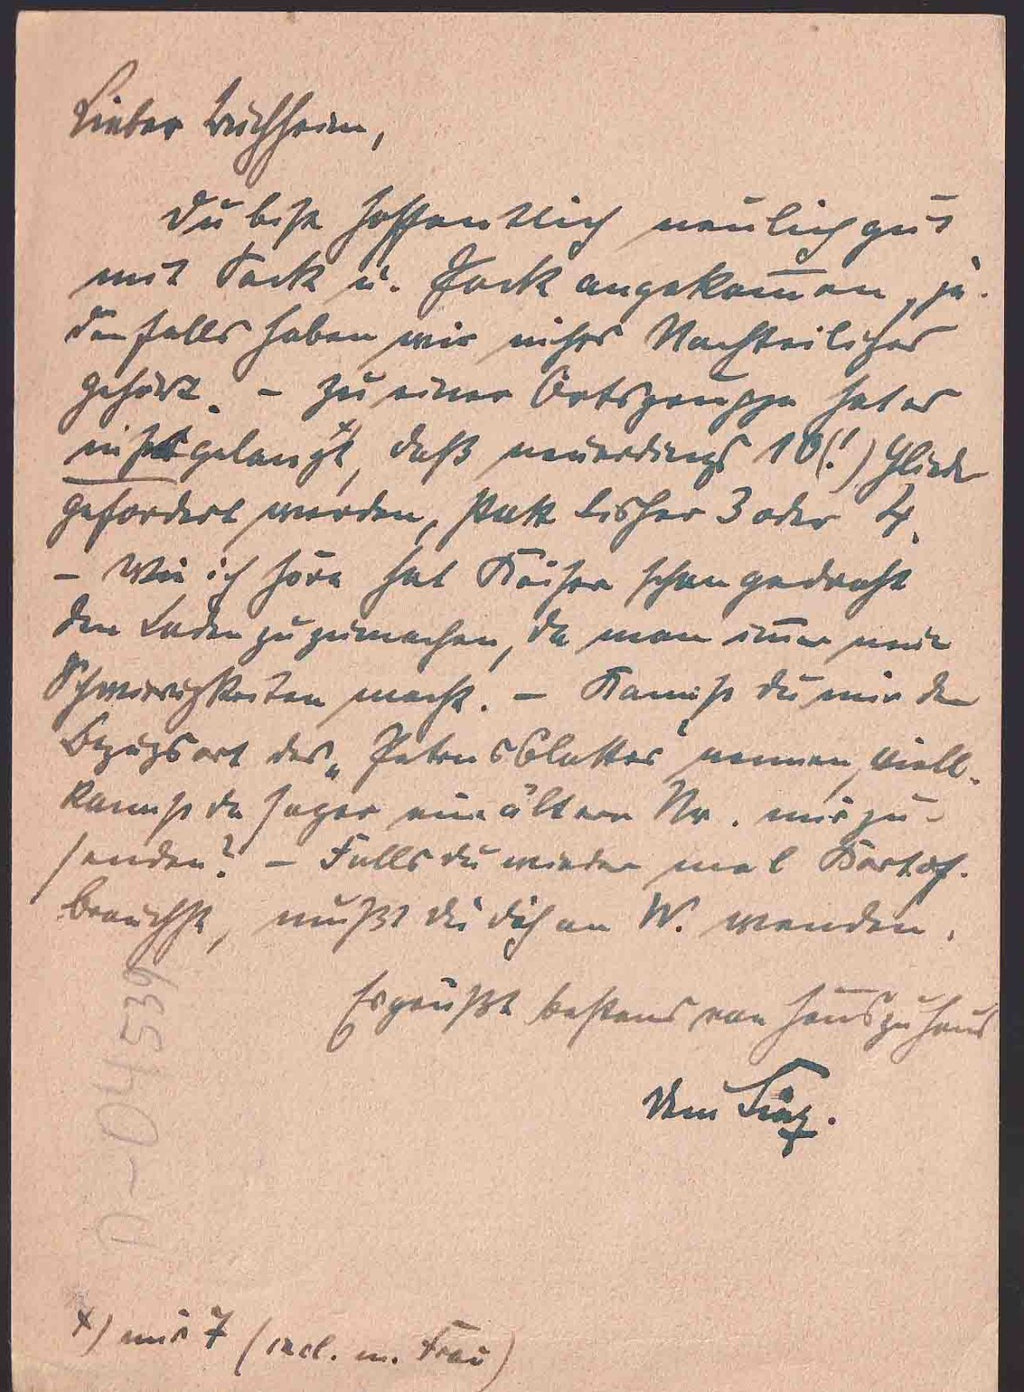 Lieber Buchheim,
Du bist hoffentlich neulich gut
mit Sack u. Pack angekommen, je-
denfalls haben wir nichts Nachteiliges
gehört. – Zu einer Ortsgruppe hat es
nicht gelangt x), daß neuerdings 10(!) Glieder
gefordert werden, statt bisher 3 oder 4.
– Wie ich höre hat Kaiser schon gedroht
den Laden zuzumachen, da man immer neue
Schwierigkeiten macht. – Kannst du mir den
Bezugsort des „Petrusblattes" nennen, viell.
kannst du sogar eine ältere Nr. mir zu-
senden? – Falls du wieder mal Kartof.
brauchst, mußt du dich an W. wenden.
Es grüßt bestens von Haus zu Haus
Dein
D-04539
x) nur 7 (incl. m. Frau)